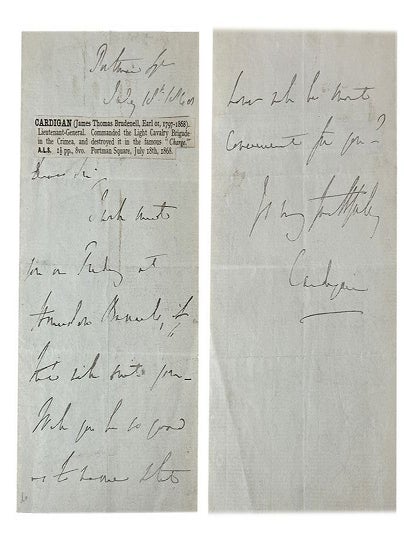 Portman Sqe
July 18th 1860
CARDIGAN (James Thomas Brudenell, Earl of, 1797-1868).
Lieutenant-General. Commanded the Light Cavalry Brigade
in the Crimea, and destroyed it in the famous "Charge."
A.L.S. 1½ pp., 8vo. Portman Square, July 18th, 1868.
Dear Sir
I shall meet
you on at
Barracks, if
this will suit you-
Will you be so good
as to name
hour will be most
convenient for you?
Yrs very faithfully
Cardigan